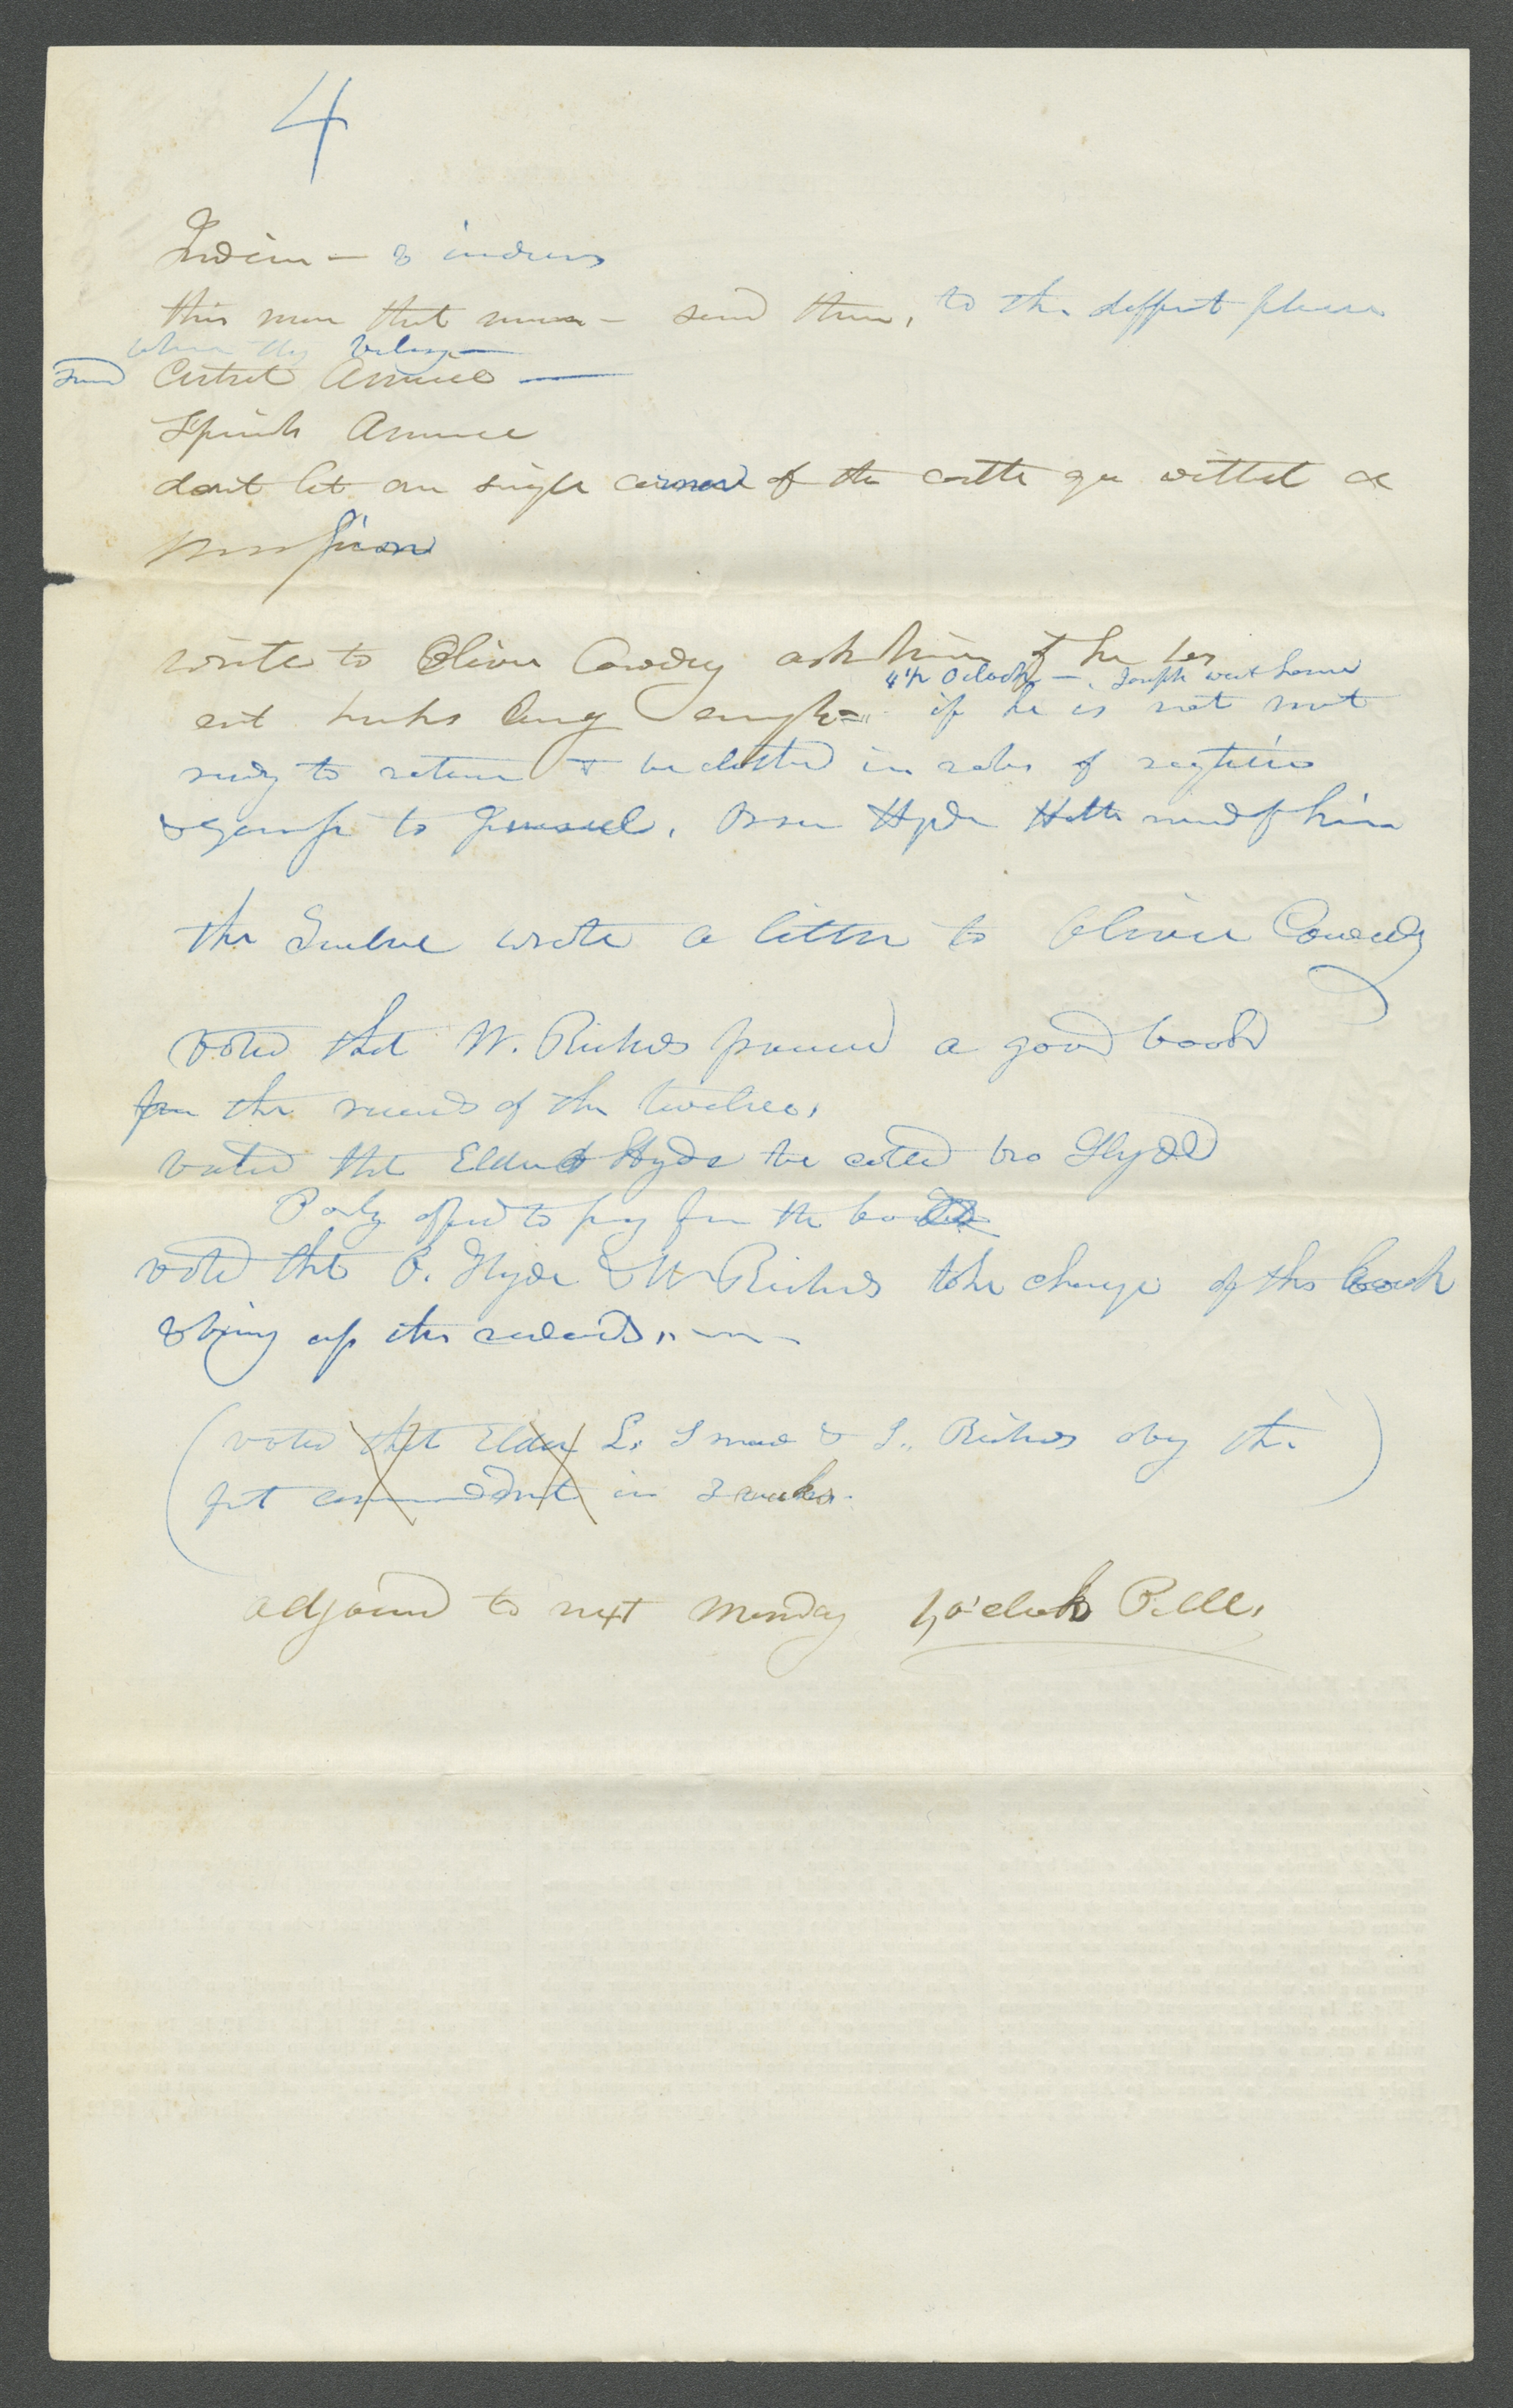 4
Indian — & indians
this man that man — send them, to the diffent places
where they belong —
Send Central America —
Spanish America
dont let one single corner of the earth go without a
mission
write to Oliver Cowdry ask him if he has
4 1/2 Oclock —. Joseph went home
eat husks long enough= if he is not most
redy to return & be clothed in robes of
& go up to Jerusal. Orson Hyde Hath need of him
the Twelve wrote a letter to Oliver Cowedy
voted that W. Richds procured a good book
for the records of the twelve.
voted that Elder Hyde be called bro Hyde
P offerd to pay for the book
voted that O. Hyde & W Richds take charge of the book
& bring up the records,,
(voted that Elder L. Snow & L. Richds obey the
fst commandmnt in 3 weeks.)
adjournd to next Monday 1, o'clock P.M.